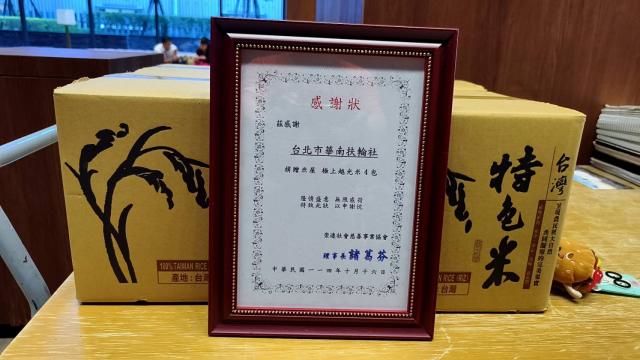 感謝狀
茲感謝
台北市華南扶輪社
捐贈米屋 極上越光米4包
隆情盛意 無限感荷
特致此狀 以申謝忱
崇德社會慈善事業協會
理事長 諸葛芬
中華民國一一四年十月十六日
100% TAIWAN RICE
產地:台
台灣
特色米
台灣